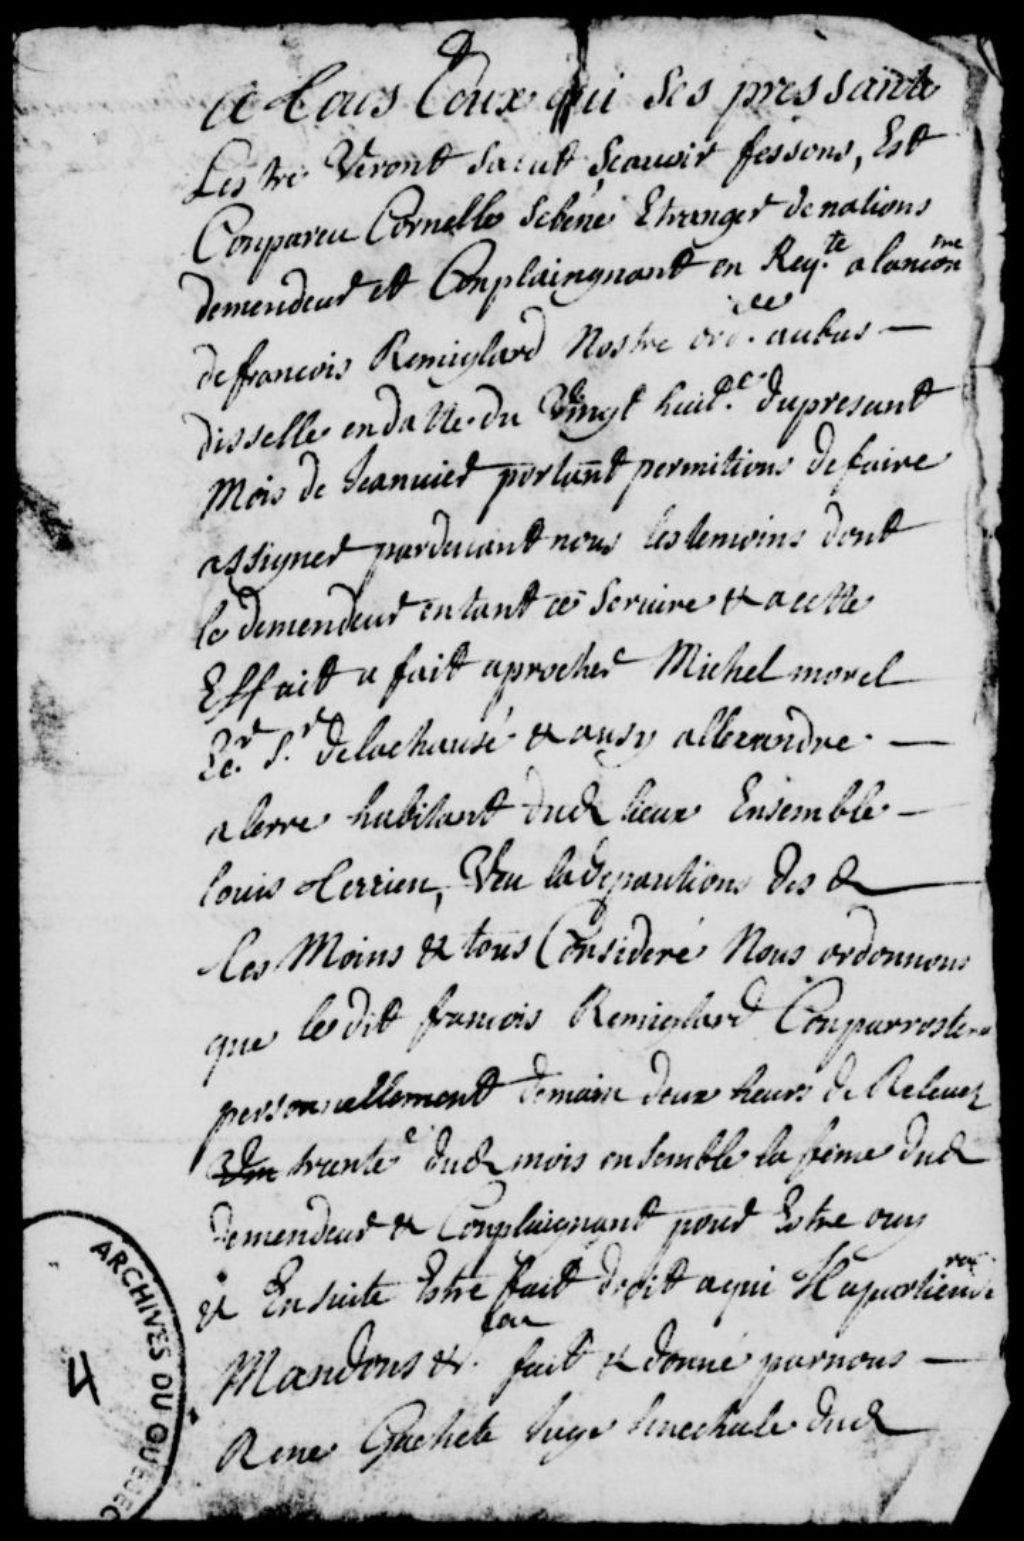 A tous Ceux qui Ses pressante
Lestre Veront Salut Scauoir fessons, Est
Conpareu Cornelle Selene Etranger de nations
demendeur et Conplaingnant en Reqte. a lancon
tre
de francois Remiglard Nostre ord.ce aubas —
disselle en datte du Vingt huit.e dupresant
Mois de Jeanuier portant permitions de faire
assigner pardeuant nous les temoins dont
le demendeur entant ce Seruire & a cette
Effait a fait aprocher Michel morel
Ecr. Sr. delachausé & ausy allexandre —
alerre habitant dud lieux Ensemble —
louis Terrien, Veu la depoutions des d
tes Moins & tous Consideré Nous ordonnons
que le dit francois Remiglard Conparrostera
personnellement demain deux heurs de Releuez
trante.e dud mois ensemble la feme dud
demendeur & Conplaignant pour Estre ouy
& En suite Estre fait droit aqui Il apartiendra
Mandons &. fait & donné parnous —
Rene Gachete Juge senechale dud
ARCHIVES DU QUEBEC
4